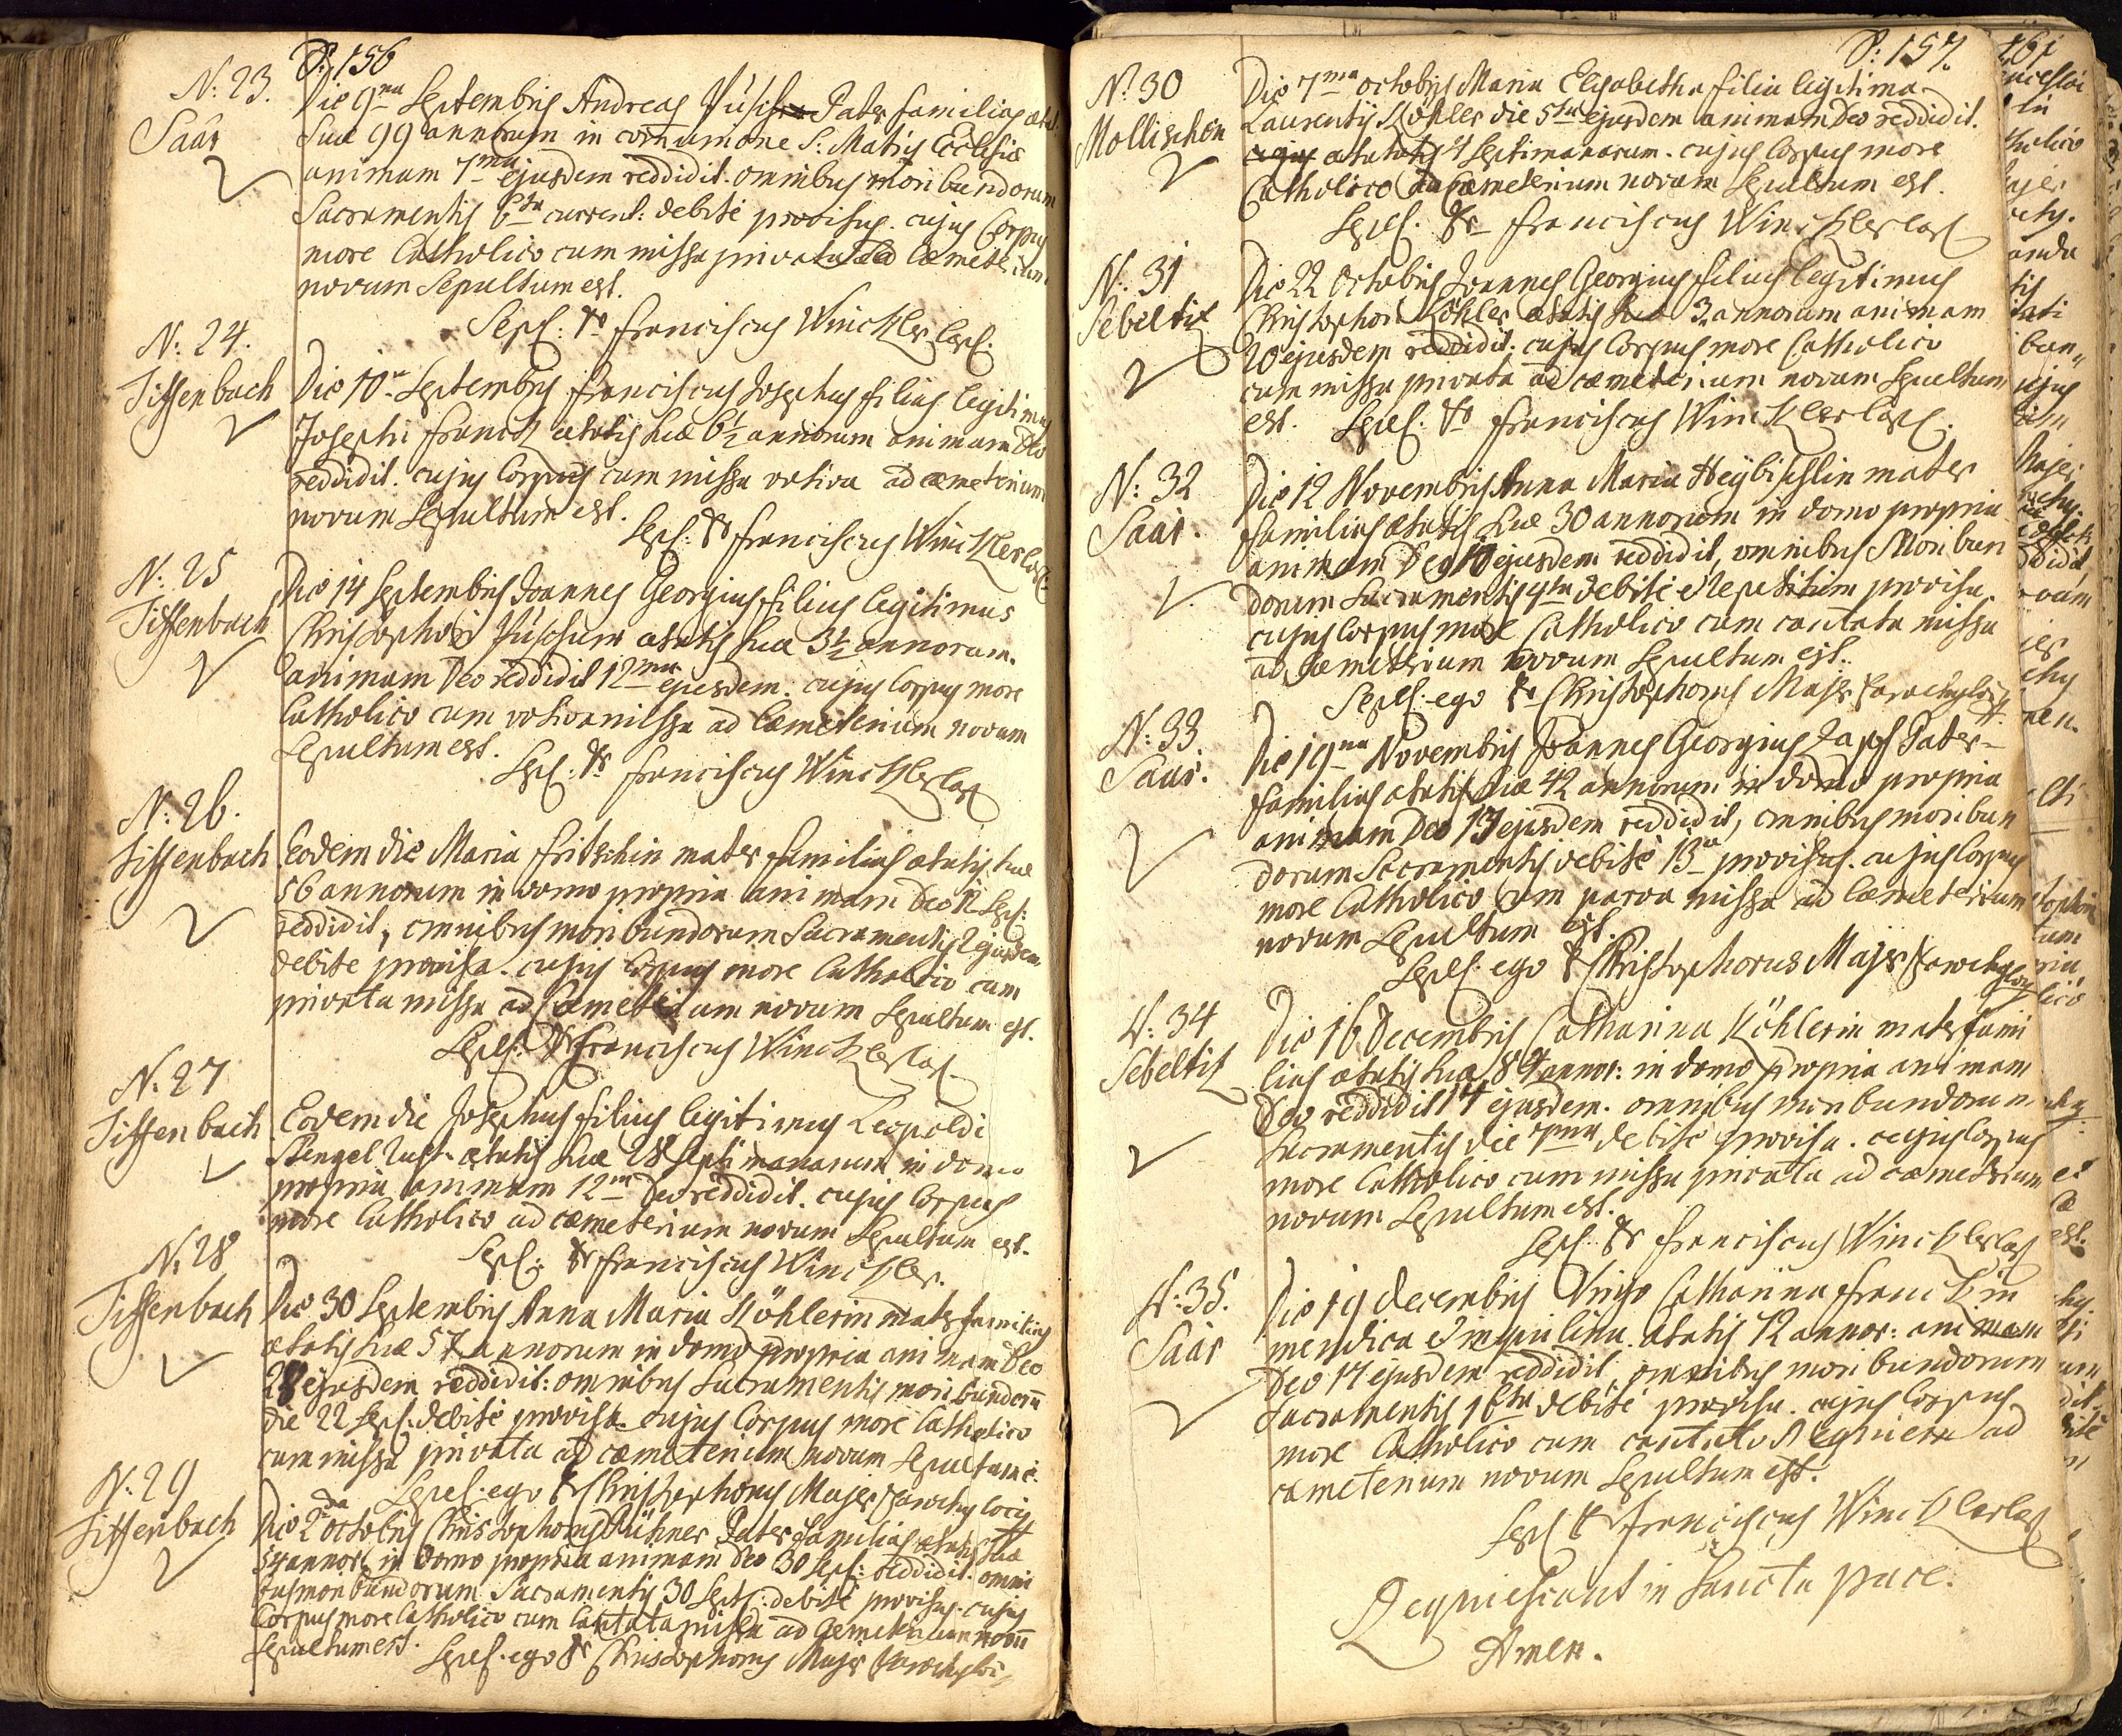 P: 156
N: 23.
Saár
Die 9na Septembris Andreas Püsch Pater familias ætat
Suæ 99 annorum in comunione S: Matris Ecclesiæ
animam 7ma ejusdem reddidit. omnibus moribundorum
Sacramentis 6ta current: debite provisus. cujus Corpus
more Catholico cum missa privata ad Cæmeterium
novum Sepultum est.
Sepel: P Franciscus Winckler Capl.
N: 24.
Tiffenbach
Die 10a Septembris Franciscus Josephus filius legitimus
Josephi Franck ætatis suæ 6½ annorum animam Deo
reddidit. cujus Corpus cum missa votiva ad cæmeterium
novum Sepultum est.
Sepel: P Franciscus Winckler Capl:
N: 25
Tiffenbach
Die 14 Septembris Joannes Georgius filius legitimus
Christophori Püschum ætatis suæ 3½ annorum.
animam Deo reddidit 12ma ejusdem. cujus Corpus more
Catholico cum votiva missa ad Cæmeterium novum
Sepultum est.
Sepel: P Franciscus Winckler Cap
N: 26.
Tiffenbach
Eodem die Maria Fritschin mater familias ætatis suæ
56 annorum in domo propria animam Deo 12 Sept:
reddidit, omnibus moribundorum Sacramentis 2 ejusdem
debite provisa. cujus Corpus more Catholico cum
privata missa ad Cæmeterium novum Sepultum est.
Sepel: P Franciscus Winckler Cap.
N: 27
Tiffenbach
Eodem die Josephus filius legitimus Leopoldi
Stengel Inst. ætatis suæ 28 Septimanarum in domo
propria animam 12ma Deo reddidit. cujus Corpus
more Catholico ad cæmeterium novum Sepultum est.
Sepel: P Franciscus Winckler.
N: 28
Tiffenbach
Die 30 Septembris Anna Maria Köhlerin mater familias
ætatis suæ 57 annorum in domo propria animam Deo
28 ejusdem reddidit: omnibus Sacramentis moribundorū
die 22 Sept: debite provisa. cujus Corpus more Catholico
cum missa privata ad cæmeterium novum Sepultum e.
Sepel: ego P Christophorus Majer Parochus loci
N: 29
Tiffenbach
Die 2da octobris Christophorus Kühner Pater familias ætatis suæ
54 annor: in domo propria animam Deo 30 Sept: reddidit. omni
bus moribundorum Sacramentis 30 Sept: debite provisus. cujus
Corpus more Catholico cum Cantata missa ad Cæmeterium novū
Sepultum est.
Sepel: ego P Christophorus Majer Parochus loci
P: 157.
N: 30
Mollischen
Die 7ma octobris Maria Elisabetha filia legitima
Laurentij Köhler die 5ta ejusdem animam Deo reddidit.
ætatis 4 Septimanarum. cujus Corpus more
Catholico ad Cæmeterium novum Sepultum est.
Sepel: P Franciscus Winckler Capl
N: 31
Sebeltit
Die 22 Octobris Joannes Georgius filius legitimus
Christophori Köhler ætatis suæ 3. annorum animam
20 ejusdem reddidit. cujus Corpus more Catholico
cum missa privata ad cæmeterium novum Sepultum
est. Sepel: P Franciscus Winckler Capl.
N: 32
Saár.
Die 12 Novembris Anna Maria Heÿbischlin mater
familias ætatis suæ 30 annorum in domo propria
animam Deo 10 ejusdem reddidit, omnibus Moribun
dorum Sacramentis 9ta debite et repetitum provisa.
cujus Corpus more Catholico cum cantata missa
ad Cæmeterium novum Sepultum est.
Sepel: ego P Christophorus Majer Parochus loci
N: 33.
Saár.
Die 19na Novembris Joannes Georgius Zapf Pater
familias ætatis suæ 42 annorum in domo propria
animam Deo 17 ejusdem reddidit, omnibus moribun
dorum Sacramentis debite 13a provisus. cujus Corpus
more Catholico cum parva missa ad Cæmeterium
novum Sepultum est.
Sepel: ego P Christophorus Majer Parochus loci
N: 34
Sebeltit
Die 16 Decembris Catharina Köhlerin mater fami
lias ætatis suæ 84 annor: in domo propria animam
Deo reddidit 14 ejusdem. omnibus moribundorum
Sacramentis die 7ma debite provisa. cujus Corpus
more Catholico cum missa privata ad cæmeterium
novum Sepultum est.
Sepel: P Franciscus Winckler Cap
N: 35.
Saár
Die 19 decembris Virgo Catharina Franckin
mendica et inquilina. ætatis 72 annor: animam
Deo 17 ejusdem reddidit, omnibus moribundorum
Sacramentis 16ta debite provisa. cujus Corpus
more Catholico cum cantato Requiem ad
cæmeterium novum Sepultum est.
Sepel P Franciscus Winckler Cap
Requiescant in Sancta pace.
Amen.